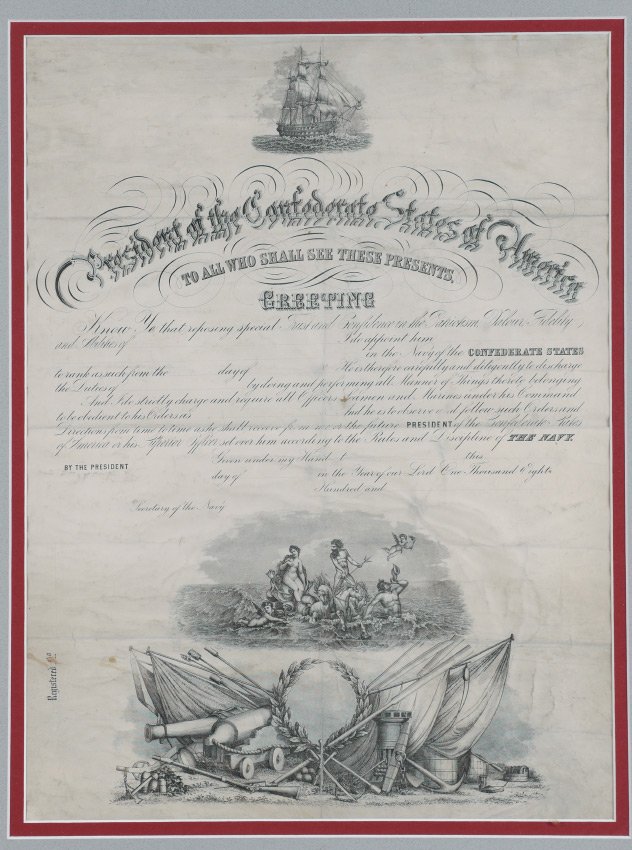 President of the Confederate States of America
TO ALL WHO SHALL SEE THESE PRESENTS,
GREETING
Know Ye that reposing special Trust and Confidence in the Patriotism, Valour, Fidelity,
and Abilities of I do appoint him
in the Navy of the CONFEDERATE STATES
to rank as such from the day of He is therefore carefully and diligently to discharge
the Duties of by doing and performing all Manner of Things thereto belonging
And I do strictly charge and require all Officers Seamen and Marines under his Command
to be obedient to his Orders as And he is to observe and follow such Orders and
Directions from time to time as he shall receive from me or the future PRESIDENT of the Confederate States
of America or his Superior Officer set over him according to the Rules and Discipline of THE NAVY.
Given under my Hand at this
BY THE PRESIDENT
day of in the Year of our Lord One Thousand Eight
Hundred and
Secretary of the Navy
Registered No